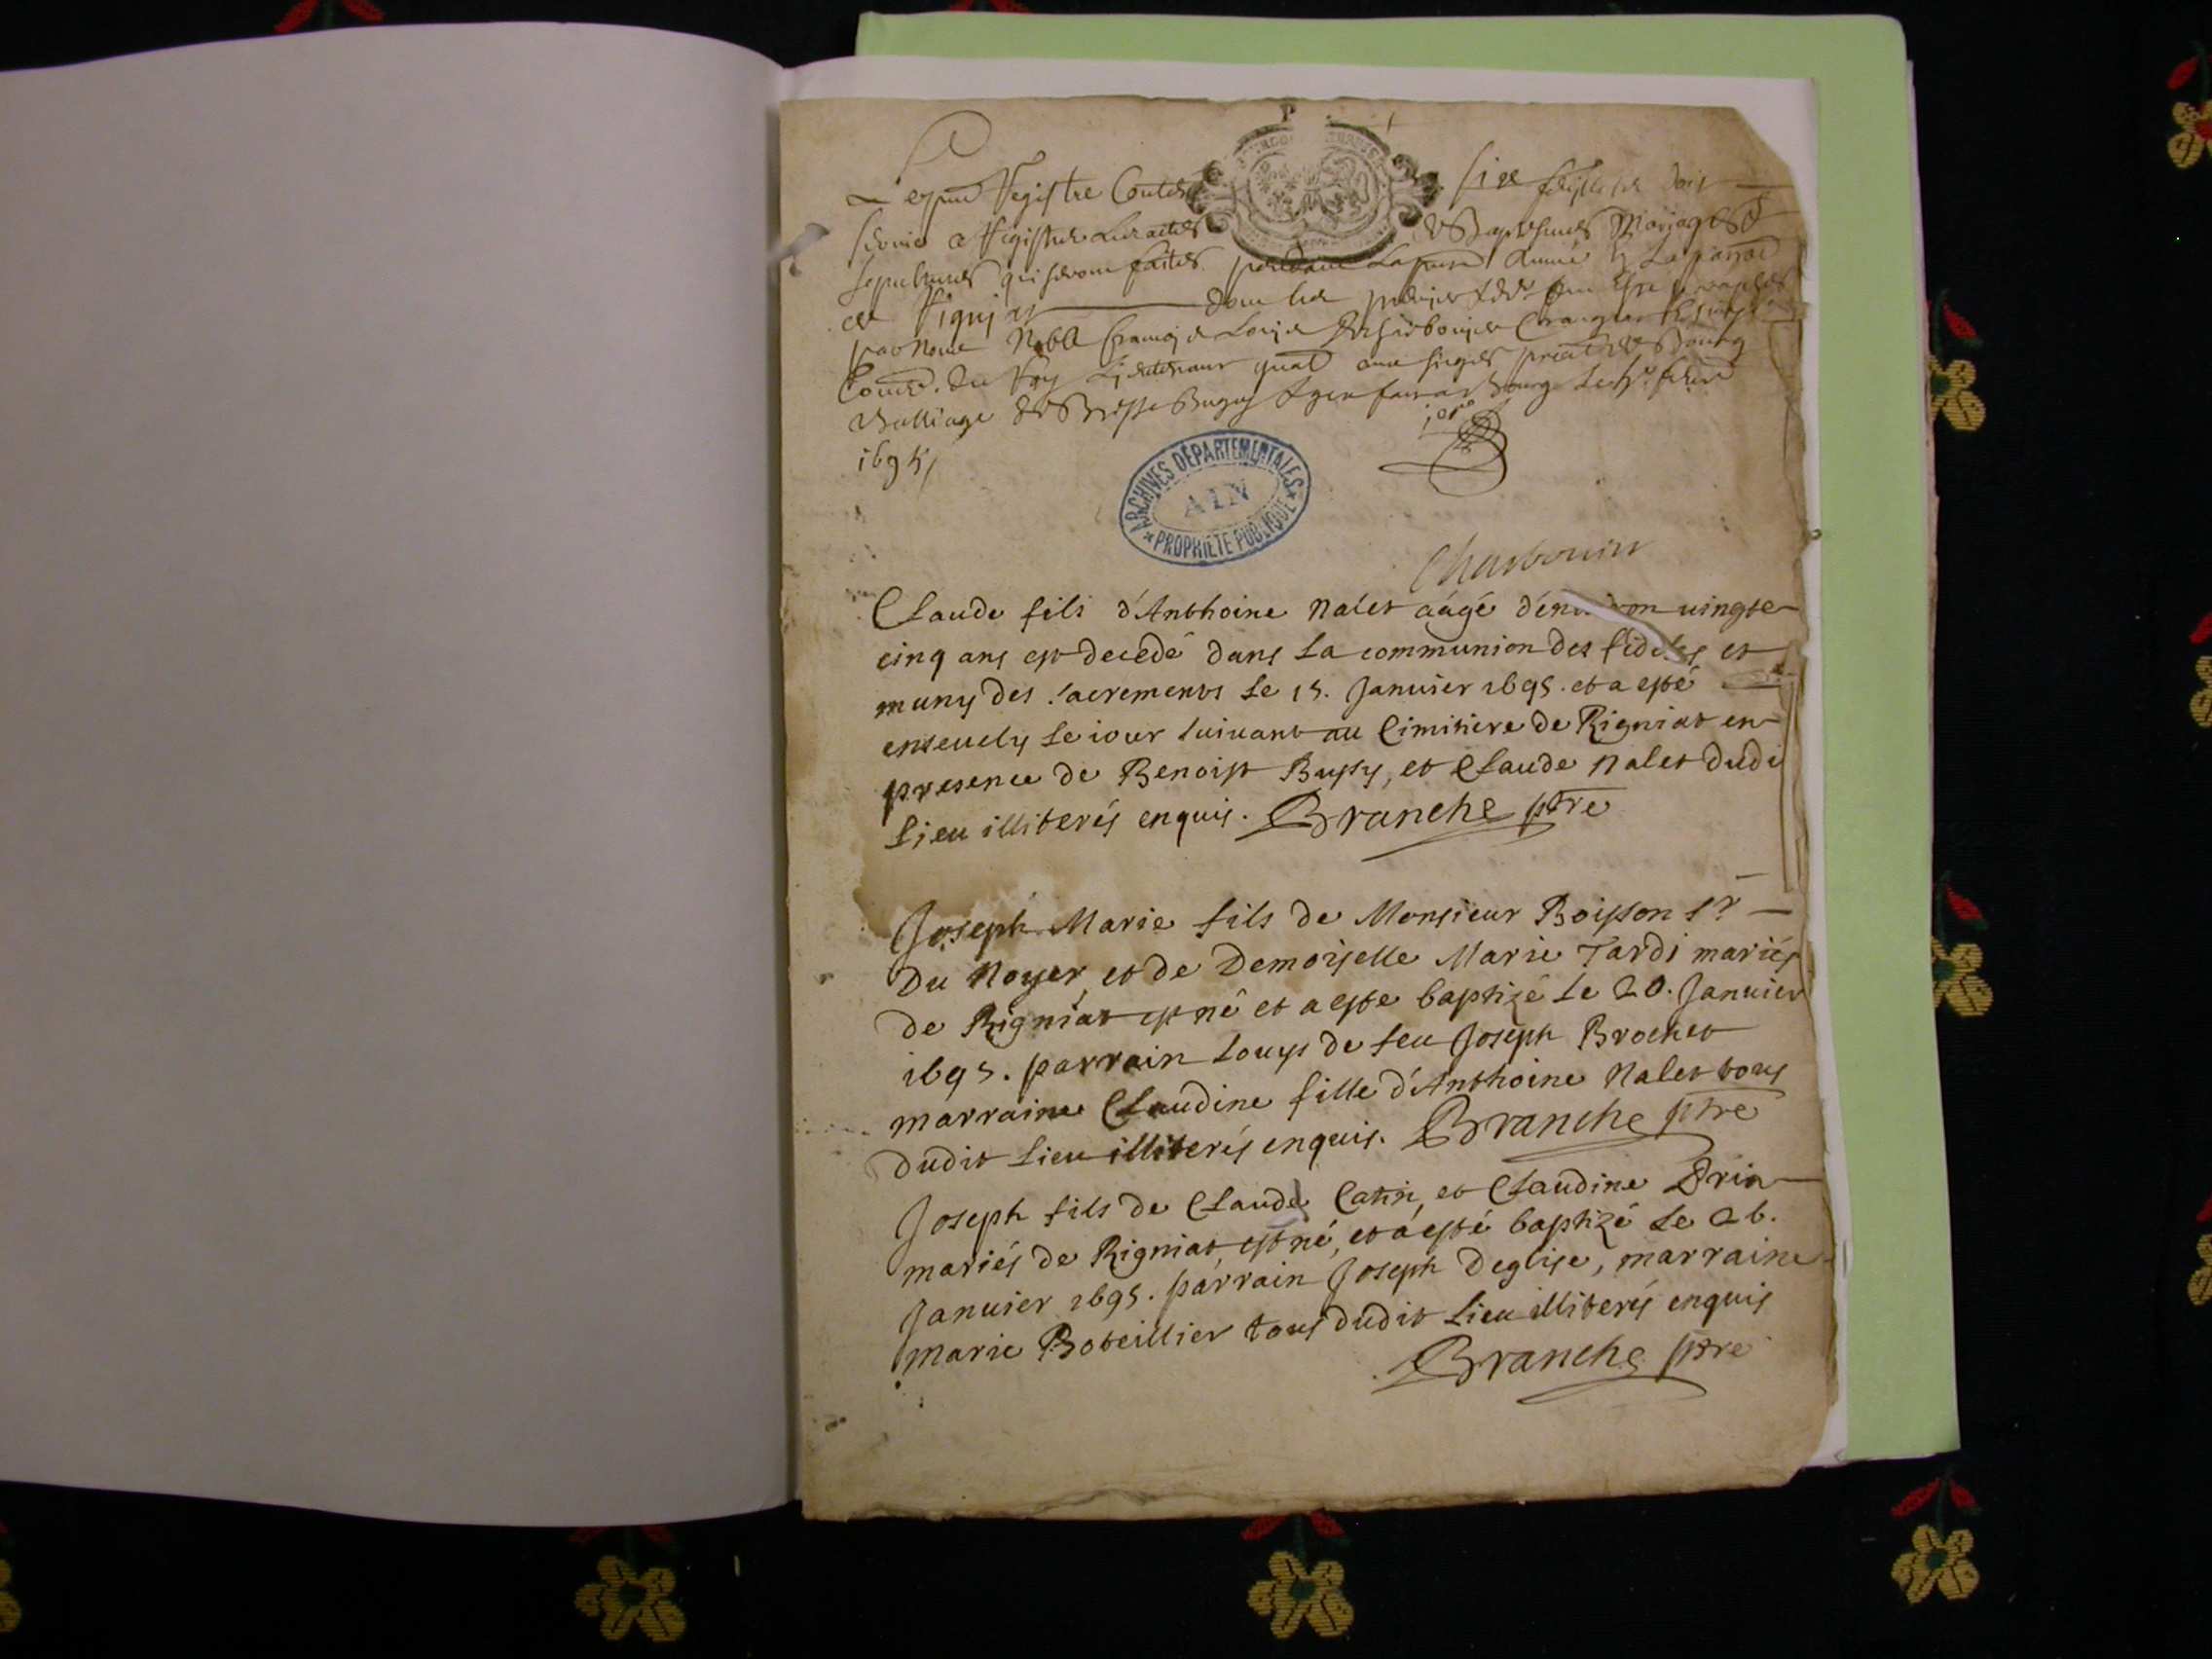 P
Le present Registre Contenant six feuillets doit
servir a Registrer les actes de Baptesmes Mariages &
sepultures qui seront faites pendant la presente Année En la parroisse
de Rignias dont les premier & der ont Esté paraphés
par Nous Noble François Louis de Charbonnier
Conser. du Roy Lieutenant gnal aux sieges de Bourg
Balliage de Bresse Bugey & Gex fait a Bourg
1695
ARCHIVES DÉPARTEMENTALES
AIN
PROPRIÉTÉ PUBLIQUE
Charbonnier
Claude fils d'Anthoine Nalet aágé d'environ uingte
cinq ans est decedé dans la communion des fideles et
muny des sacrements le 15. Januier 1695. et a esté
enseuely le iour suiuant au Cimitiere de Rigniat en
presence de Benoist Bussy, et Claude Nalet dudi
lieu illiterés enquis. Branche ptre
Joseph Marie fils de Monsieur Boisson Sr
Du Noyer et de Demoiselle Marie Tardi mariés
de Rigniat est né et a este baptizé le 20. Januier
1695. parrain Louys de feu Joseph Brochet
marraine Claudine fille d'Anthoine Nalet tous
dudit lieu illiterés enquis. Branche ptre
Joseph fils de Claude Catin et Claudine Brin
mariés de Rigniat est né, et a esté baptizé le 26.
Januier 1695. parrain Joseph Deglise, marraine
Marie Boteillier tous dudit lieu illiterés enquis
Branche ptre